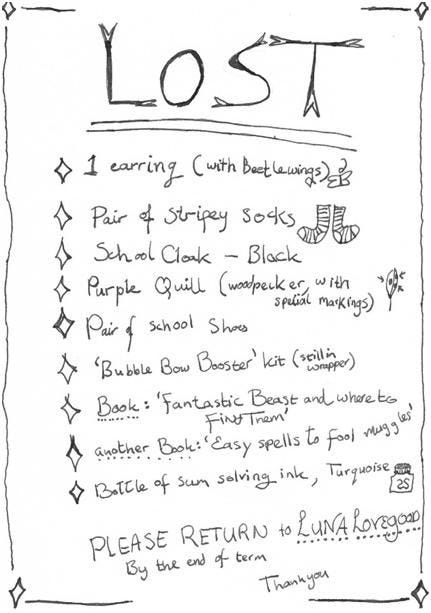 LOST
1 earring (with Beetlewings)
Pair of Stripey Socks
School Cloak - Black
Purple Quill (woodpecker, with
special markings)
Pair of school Shoes
'Bubble Bow Booster' kit (still in
wrapper)
Book: 'Fantastic Beast and where to
Find Them'
another Book: 'Easy spells to fool muggles'
Bottle of sum solving ink, Turquoise
2S
PLEASE RETURN to LUNA LOvegOOD
By the end of term
Thankyou